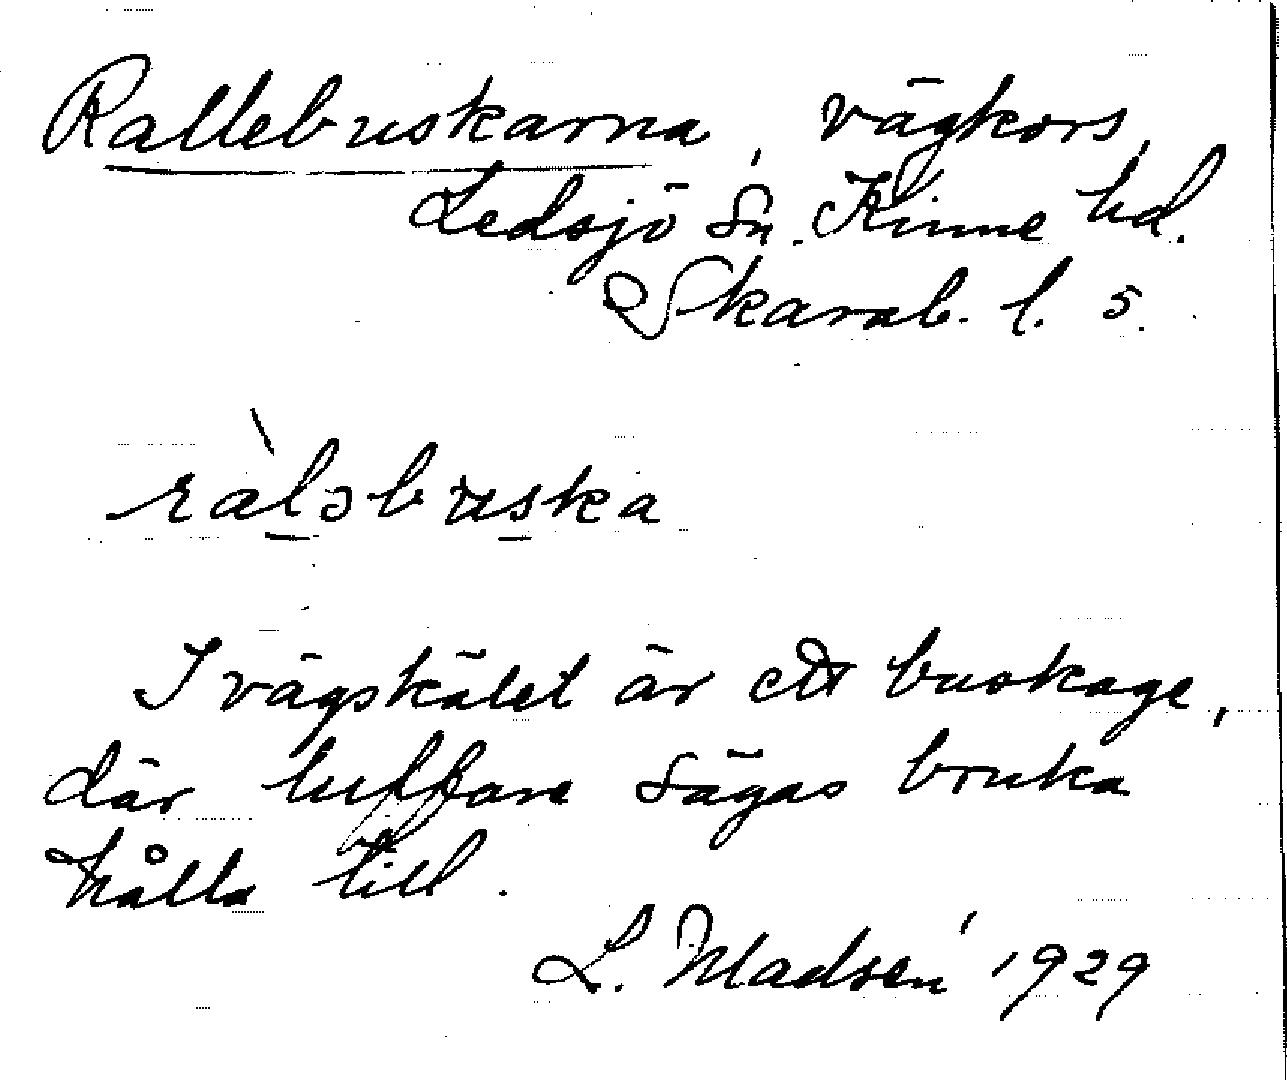 Rallebuskarna, vägkors,
Ledsjö sn. Kinne hd.
Skarab. l. 5.
ràlɔbuska
I vägskälet är ett buskage,
där luffare sägas bruka
hålla till.
L. Madsén 1929